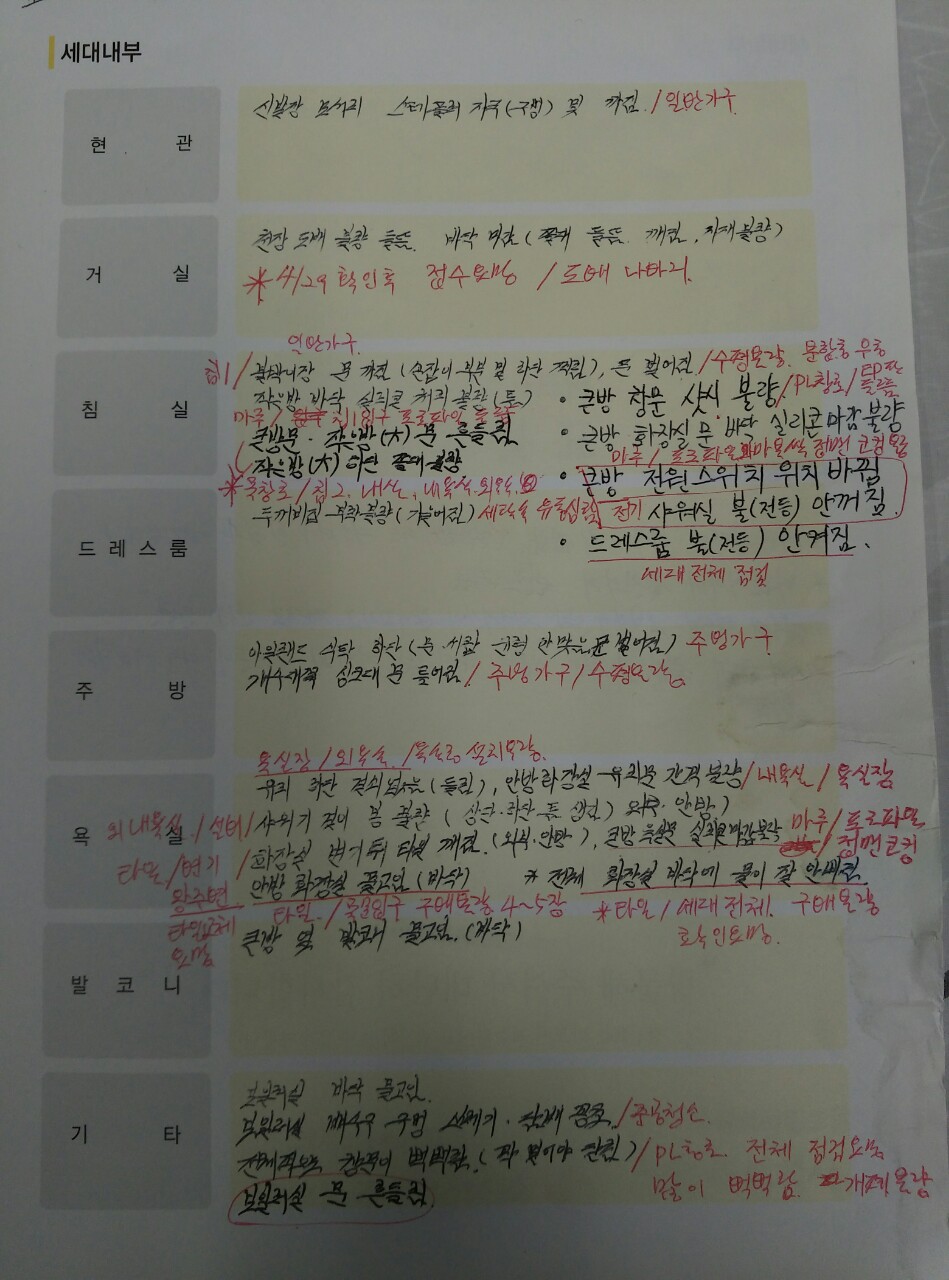 세대내부
현 관
신발장 모서리 스테플러 자국(구멍) 및 까짐. / 일반가구
거 실
천장 도배 불량 들뜸. 바닥 마감 (들뜸. 깨짐, 자재불량)
* 4/29 확인후 접수요망 / 도배 나마리.
일반가구
침 실
침1 / 붙박이장 문 까짐 (손잡이 부분 및 하단 찍힘), 문 벌어짐 / 수평불량.
작은방 바닥 실리콘 처리 불량 (틈)
• 큰방 창문 샷시 불량 / PL창호 /
마루 / 침1입구 프로파일 들뜸
큰방문. 작은방(大) 문 흔들림
• 큰방 화장실 문 바닥 실리콘 마감불량
마루 / 프로파일 정면 코킹
작은방(大) 하단 불량
• 큰방 전원스위치 위치 바뀜
* 목창호 / 침2. 내실, 내욕실. 외욕실
두꺼비집 부착불량 (기울어짐)
전기 샤워실 불(전등) 안꺼짐.
드 레 스 룸
• 드레스룸 불(전등) 안켜짐.
세대 전체 점검
주 방
아일랜드 식탁 하단 (문. 서랍 안맞음. 문 벌어짐) 주방가구
개수대쪽 싱크대 문 틀어짐. / 주방가구 / 수평불량.
욕실장 / 외욕실. / 욕실장 설치불량.
유리 하단 (들림), 안방화장실 유리문 간격불량 / 내욕실 / 욕실장
욕 실
외내욕실 / 설비 / 샤워기 걸이 봉 불량 (상단. 하단. 틈 생김) 안방)
마루 / 프로파일
타일 / 변기 / 화장실 변기뒤 타일 깨짐. (외부. 안방), 큰방 욕실문 실리콘마감불량 / 정면코킹
왕주변
안방 화장실 물고임 (바닥) * 전체 화장실 바닥에 물이 잘 안빠짐
타일교체 요망
타일. / 욕실입구 구배불량 4~5장
* 타일 / 세대전체. 구배불량 확인요망.
큰방 옆 발코니 물고임. (바닥)
발 코 니
보일러실 바닥 물고임.
기 타
보일러실 배수구 구멍 쓰레기. 담배 꽁초. / 준공청소
전체적으로 창문이 뻑뻑함. (꽉 닫힘) / PL창호. 전체 점검요망
많이 뻑뻑함. 개폐불량
보일러실 문 흔들림